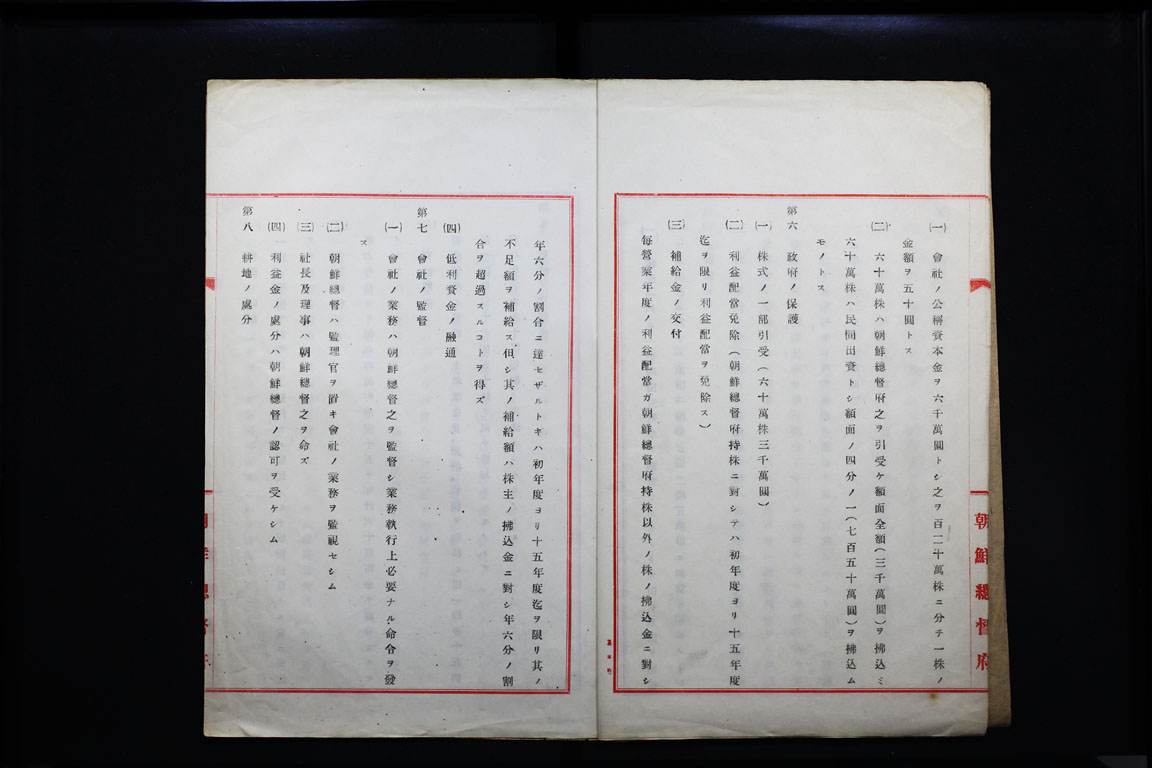 (一) 會社ノ公稱資本金ヲ六千萬圓トシ之ヲ百二十萬株ニ分チ一株ノ
金額ヲ五十圓トス
(二) 六十萬株ハ朝鮮總督府之ヲ引受ケ額面全額(三千萬圓)ヲ拂込ミ
六十萬株ハ民間出資トシ額面ノ四分ノ一(七百五十萬圓)ヲ拂込ム
モノトス
第六 政府ノ保護
(一) 株式ノ一部引受(六十萬株三千萬圓)
(二) 利益配當免除(朝鮮總督府持株ニ對シテハ初年度ヨリ十五年度
迄ヲ限リ利益配當ヲ免除ス)
(三) 補給金ノ交付
每營業年度ノ利益配當ガ朝鮮總督府持株以外ノ株ノ拂込金ニ對シ
朝鮮總督府
年六分ノ割合ニ達セザルトキハ初年度ヨリ十五年度迄ヲ限リ其ノ
不足額ヲ補給ス但シ其ノ補給額ハ株主ノ拂込金ニ對シ年六分ノ割
合ヲ超過スルコトヲ得ズ
(四) 低利資金ノ融通
第七 會社ノ監督
(一) 會社ノ業務ハ朝鮮總督之ヲ監督シ業務執行上必要ナル命令ヲ發
ス
(二) 朝鮮總督ハ監理官ヲ置キ會社ノ業務ヲ監視セシム
(三) 社長及理事ハ朝鮮總督之ヲ命ズ
(四) 利益金ノ處分ハ朝鮮總督ノ認可ヲ受ケシム
第八 耕地ノ處分